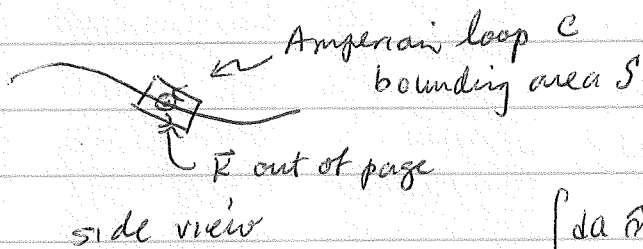 Amperian loop C
bounding area S
K⃗ out of page
side view
∫da